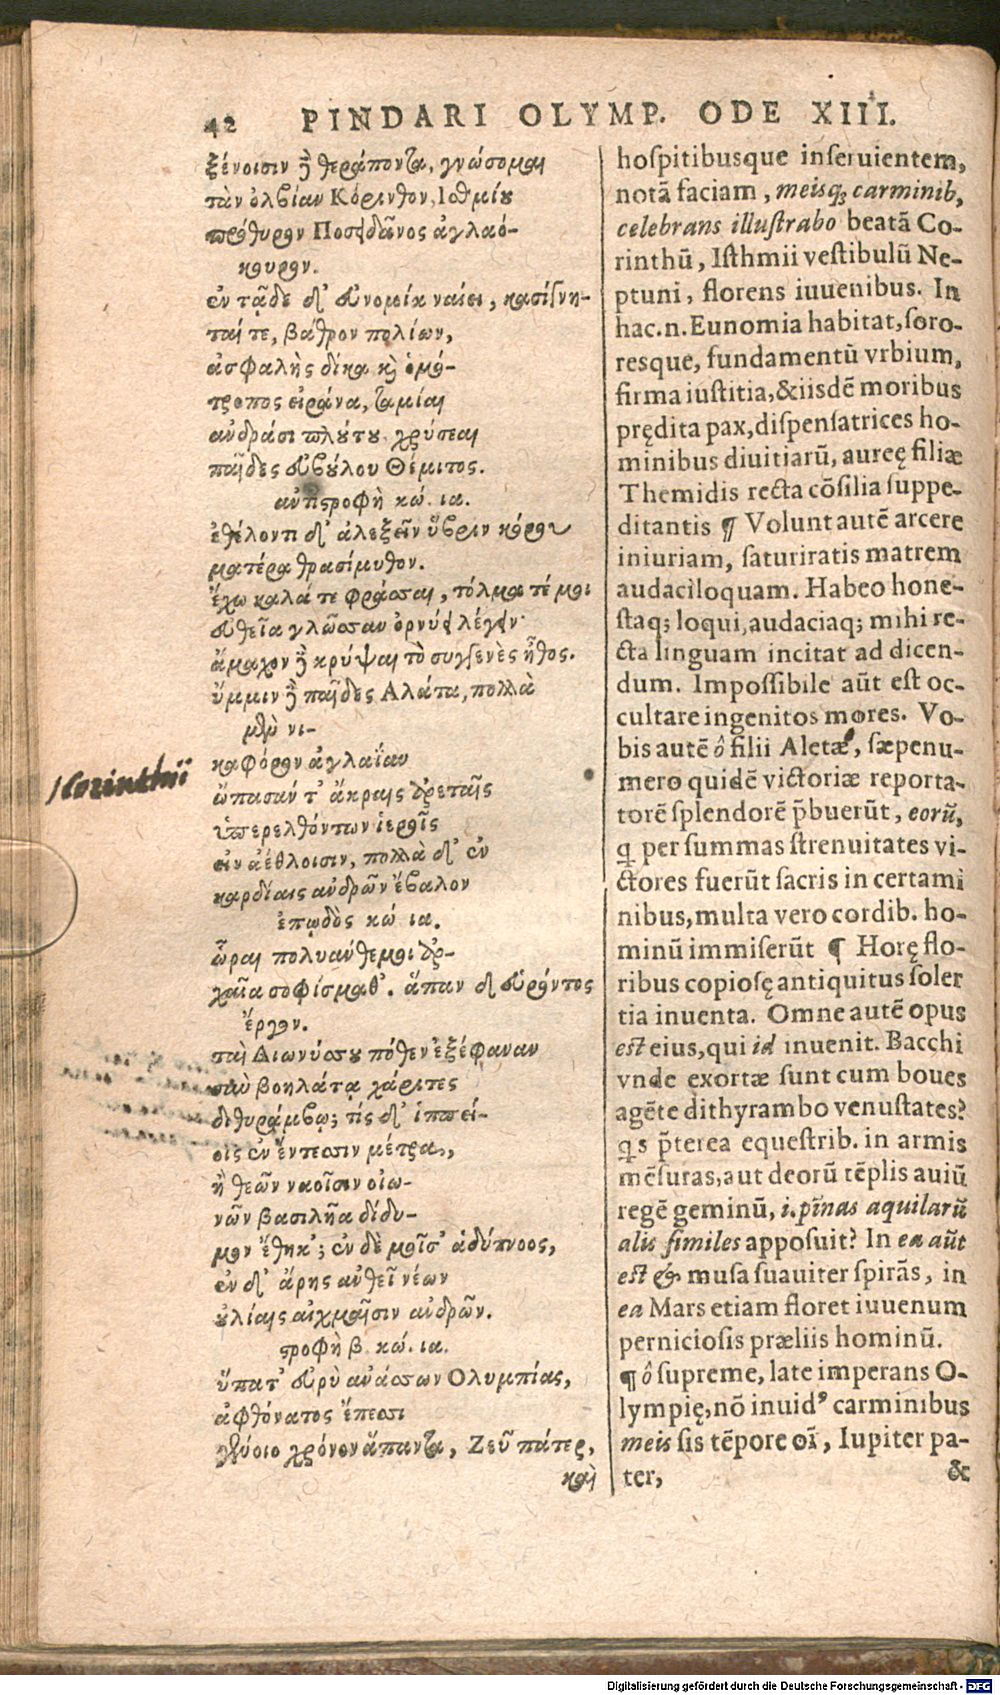 42 PINDARI OLYMP. ODE XIII.
ξένοισιν ἢ θεράποντα, γνώσομαι
τὰν ὀλβίαν Κόρινθον, Ισθμίου
πρόθυρον Ποσειδᾶνος ἀγλαό-
κουρον.
ἐν τᾷδε δ' εὐνομία ναίει, κασίγνη-
ταί τε, βάθρον πολίων,
ἀσφαλὴς δίκα καὶ ὁμό-
τροπος εἰράνα, ταμίαι
ἀνδράσι πλούτου. χρύσεαι
παῖδες εὐβούλου Θέμιτος.
ἀντιστροφὴ κώ. ια.
ἐθέλοντι δ' ἀλέξειν ὕβριν κόρου
ματέρα θρασίμυθον.
ἔχω καλά τε φράσαι, τόλμα τέ μοι
εὐθεῖα γλῶσσαν ὀρνύει λέγειν·
ἄμαχον δὲ κρύψαι τὸ συγγενὲς ἦθος.
ὔμμιν δὲ παῖδες Αλάτα, πολλὰ
μὲν νι-
καφόρον ἀγλαΐαν
ὤπασάν τ' ἄκραις ἀρεταῖς
ὑπερελθόντων ἱεροῖς
ἐν ἀέθλοισιν, πολλὰ δ' ἐν
καρδίαις ἀνδρῶν ἔβαλον
ἐπῳδὸς κώ ια.
ὧραι πολυάνθεμοι ἀρ-
χαῖα σοφίσμαθ'. ἅπαν δ' εὑρόντος
ἔργον.
ταὶ Διωνύσου πόθεν ἐξέφαναν
σὺν βοηλάτᾳ χάριτες
διθυράμβῳ; τίς δ' ἱππεί-
οις ἐν ἔντεσιν μέτρα,
ἢ θεῶν ναοῖσιν οἰω-
νῶν βασιλῆα δίδυ-
μον ἔθηκ'; ἐν δὲ μοῖσ' ἁδύπνοος,
ἐν δ' ἄρης ἀνθεῖ νέων
οὐλίαις αἰχμαῖσιν ἀνδρῶν.
στροφὴ β. κώ. ια.
ὕπατ' εὐρὺ ἀνάσσων Ολυμπίας,
ἀφθόνατος ἔπεσι
γένοιο χρόνον ἅπαντα, Ζεῦ πάτερ,
καὶ
Corinthii
hoſpitibusque inſeruientem,
notā faciam, meisq; carminib,
celebrans illuſtrabo beatā Co-
rinthū, Iſthmii veſtibulū Ne-
ptuni, florens iuuenibus. In
hac.n. Eunomia habitat, ſoro-
resque, fundamentū vrbium,
firma iuſtitia, &iisdē moribus
prędita pax, diſpenſatrices ho-
minibus diuitiarū, aureę filiæ
Themidis recta cōſilia ſuppe-
ditantis ¶ Volunt autē arcere
iniuriam, ſaturiratis matrem
audaciloquam. Habeo hone-
ſtaq; loqui, audaciaq; mihi re-
cta linguam incitat ad dicen-
dum. Impoſſibile aūt eſt oc-
cultare ingenitos mores. Vo-
bis autē ô filii Aletæ, ſæpenu-
mero quidē victoriæ reporta-
torē ſplendorē p̄buerūt, eorū,
q̄ per ſummas ſtrenuitates vi-
ctores fuerūt ſacris in certami
nibus, multa vero cordib. ho-
minū immiſerūt ¶ Horę flo-
ribus copioſę antiquitus ſoler
tia inuenta. Omne autē opus
eſt eius, qui id inuenit. Bacchi
vnde exortæ ſunt cum boues
agēte dithyrambo venuſtates?
q̄s p̄terea equeſtrib. in armis
mēſuras, aut deorū tēplis auiū
regē geminū, i. pīnas aquilarū
alis ſimiles appoſuit? In ea aūt
eſt & muſa ſuauiter ſpirās, in
ea Mars etiam floret iuuenum
pernicioſis præliis hominū.
¶ ô ſupreme, late imperans O-
lympię, nō inuidꝰ carminibus
meis ſis tēpore oī, Iupiter pa-
ter, &
Digitalisierung gefördert durch die Deutsche Forschungsgemeinschaft - DFG